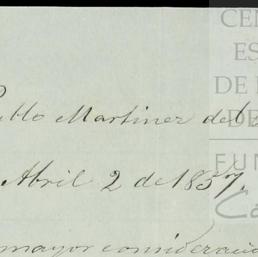 Pablo Martinez del
Abril 2 de 1857.
mayor consideracion
CEN
ES
DE
DE
FUN
Ca